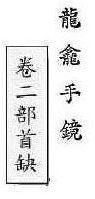 龍龕手鏡
卷二部首缺